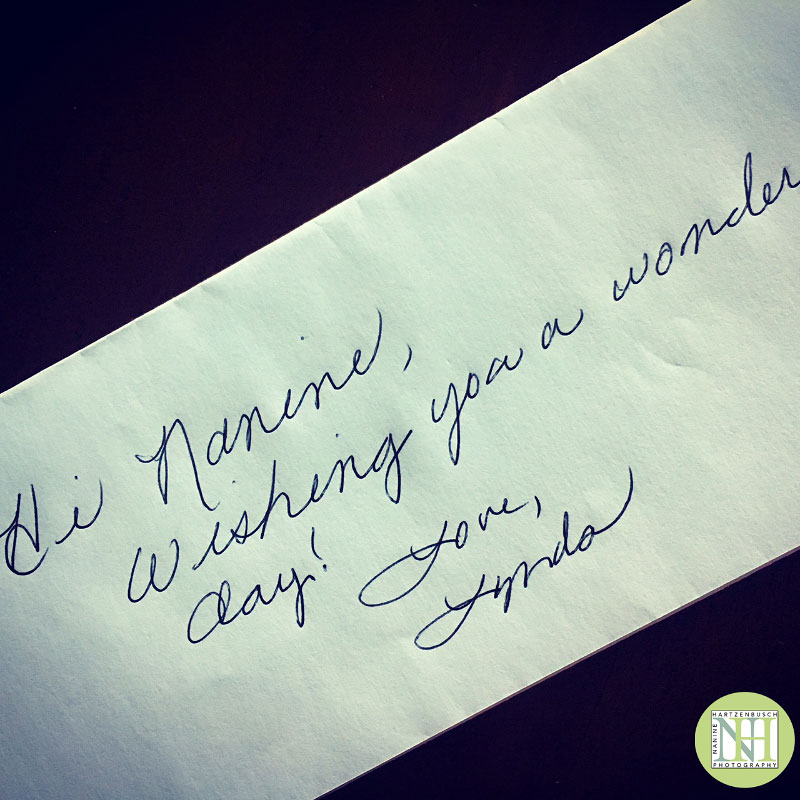 Hi Nanine,
Wishing you a wonder
day! Love,
Lynda
HARTZENBUSCH
NANINE
NHN
PHOTOGRAPHY